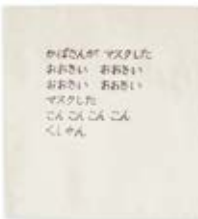 かばさんが マスクした
おおきい おおきい
おおきい おおきい
マスクした
こん こん こん こん
くしゃん